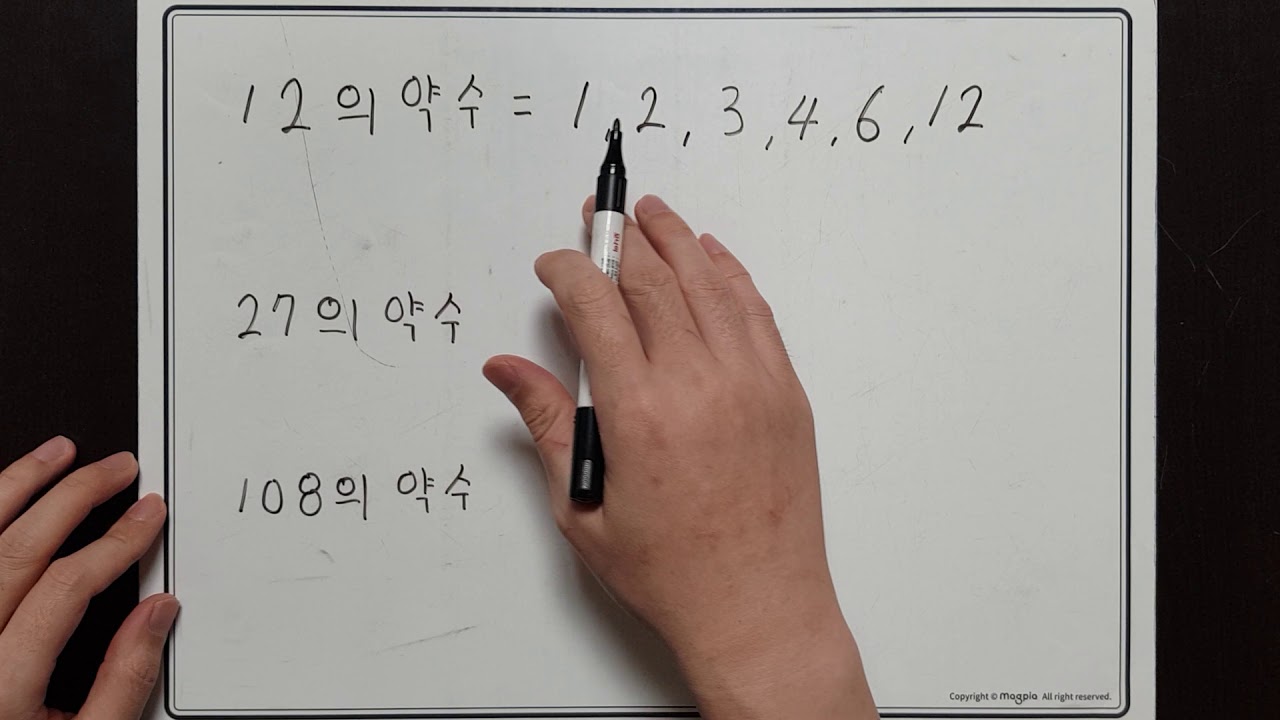 12의 약수 = 1, 2, 3, 4, 6, 12
27의 약수
108의 약수
Copyright © magpia All right reserved.